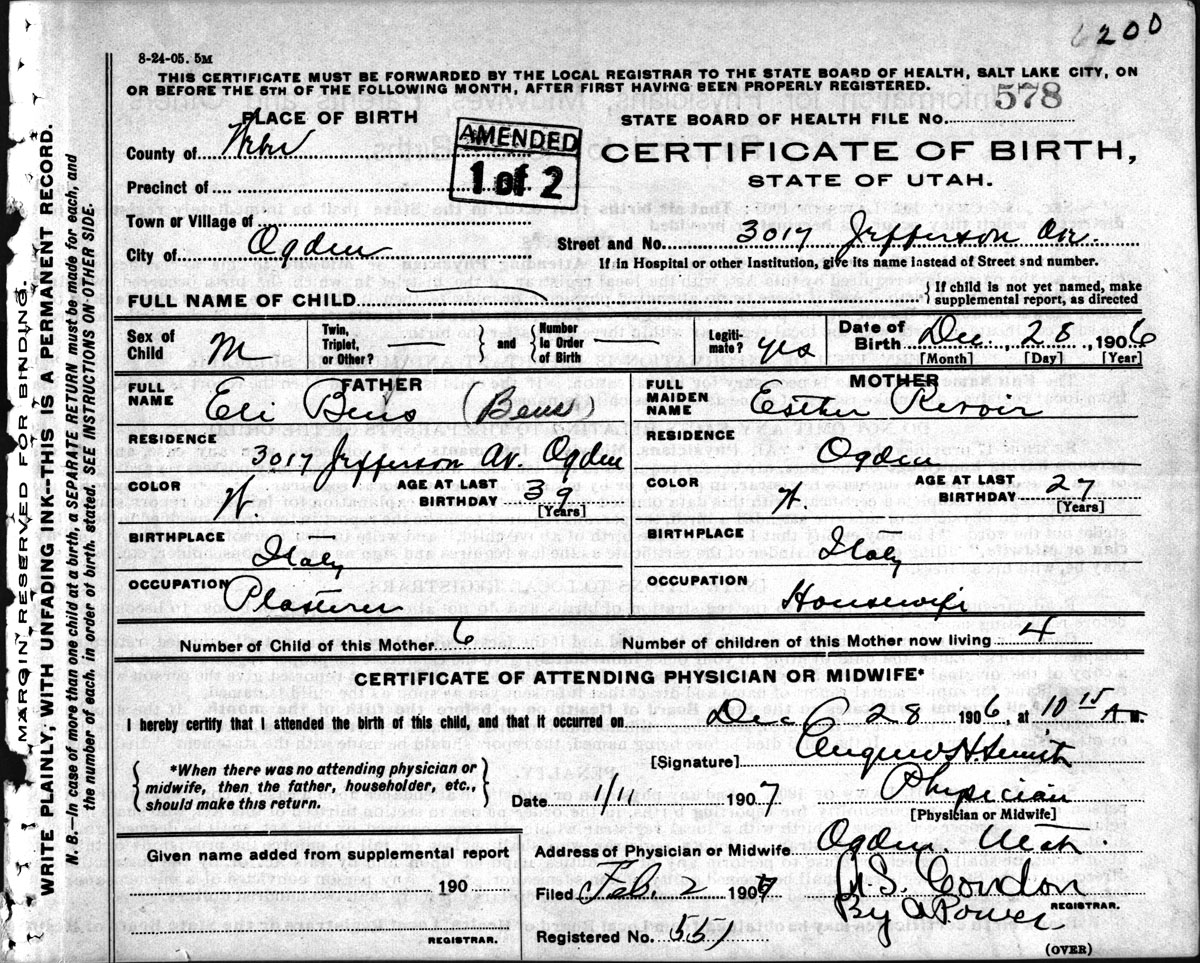 6200
8-24-05. 5M
THIS CERTIFICATE MUST BE FORWARDED BY THE LOCAL REGISTRAR TO THE STATE BOARD OF HEALTH, SALT LAKE CITY, ON
OR BEFORE THE 5TH OF THE FOLLOWING MONTH, AFTER FIRST HAVING BEEN PROPERLY REGISTERED.
PLACE OF BIRTH
STATE BOARD OF HEALTH FILE No. 578
County of
AMENDED
1 of 2
CERTIFICATE OF BIRTH,
STATE OF UTAH.
Precinct of
Town or Village of
City of Ogden
Street and No. 3017 Jefferson Av.
If in Hospital or other Institution, give its name instead of Street and number.
FULL NAME OF CHILD
If child is not yet named, make
supplemental report, as directed
Sex of Child M
Twin, Triplet, or Other?
and
Number In Order of Birth
Legitimate? yes
Date of Birth Dec. 28, 1906
[Month] [Day] [Year]
FATHER
FULL NAME Eli
RESIDENCE 3017 Jefferson Av. Ogden
COLOR W. AGE AT LAST BIRTHDAY 39
[Years]
BIRTHPLACE Italy
OCCUPATION Plasterer
MOTHER
FULL MAIDEN NAME Esther
RESIDENCE Ogden
COLOR W. AGE AT LAST BIRTHDAY 27
[Years]
BIRTHPLACE Italy
OCCUPATION Housewife
Number of Child of this Mother 6
Number of children of this Mother now living 4
CERTIFICATE OF ATTENDING PHYSICIAN OR MIDWIFE*
I hereby certify that I attended the birth of this child, and that it occurred on Dec 28 1906, at 10 15 A M.
*When there was no attending physician or
midwife, then the father, householder, etc.,
should make this return.
[Signature]
Date 1/1 1907
Physician
[Physician or Midwife]
Address of Physician or Midwife Ogden Utah
Given name added from supplemental report
190
REGISTRAR.
Filed Feb. 2 1907
Gordon
By A Power
REGISTRAR.
Registered No. 551
(OVER)
MARGIN RESERVED FOR BINDING.
WRITE PLAINLY, WITH UNFADING INK--THIS IS A PERMANENT RECORD.
N. B.—In case of more than one child at a birth, a SEPARATE RETURN must be made for each, and
the number of each, in order of birth, stated. SEE INSTRUCTIONS ON OTHER SIDE.